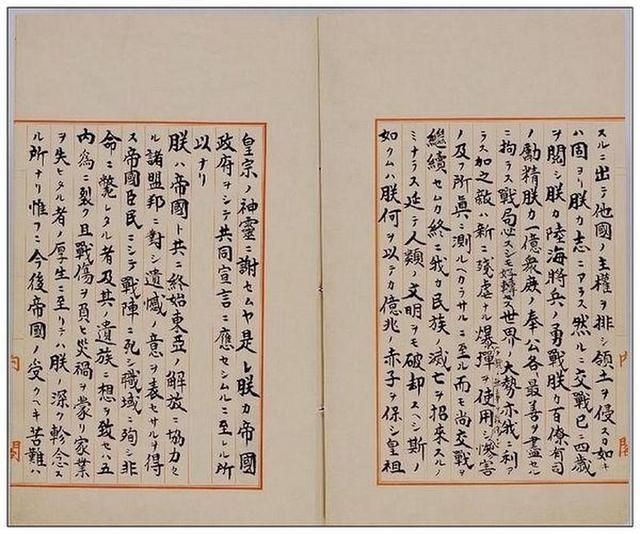 スルニ出テ他國ノ主權ヲ排シ領土ヲ侵スカ如キ
ハ固ヨリ朕カ志ニアラス然ルニ交戰已ニ四歲
ヲ閱シ朕カ陸海將兵ノ勇戰朕カ百僚有司
ノ勵精朕カ一億衆庶ノ奉公各最善ヲ盡セル
ニ拘ラス戰局必スシモ好轉セス世界ノ大勢亦我ニ利ア
ラス加之敵ハ新ニ殘虐ナル爆彈ヲ使用シテ頻ニ無辜ヲ殺傷シ慘害
ノ及フ所眞ニ測ルヘカラサルニ至ル而モ尚交戰ヲ
繼續セムカ終ニ我カ民族ノ滅亡ヲ招來スルノ
ミナラス延テ人類ノ文明ヲモ破却スヘシ斯ノ
如クムハ朕何ヲ以テカ億兆ノ赤子ヲ保シ皇祖
皇宗ノ神靈ニ謝セムヤ是レ朕カ帝國
政府ヲシテ共同宣言ニ應セシムルニ至レル所
以ナリ
朕ハ帝國ト共ニ終始東亞ノ解放ニ協力セ
ル諸盟邦ニ對シ遺憾ノ意ヲ表セサルヲ得
ス帝國臣民ニシテ戰陣ニ死シ職域ニ殉シ非
命ニ斃レタル者及其ノ遺族ニ想ヲ致セハ五
內爲ニ裂ク且戰傷ヲ負ヒ災禍ヲ蒙リ家業
ヲ失ヒタル者ノ厚生ニ至リテハ朕ノ深ク軫念ス
ル所ナリ惟フニ今後帝國ノ受クヘキ苦難ハ